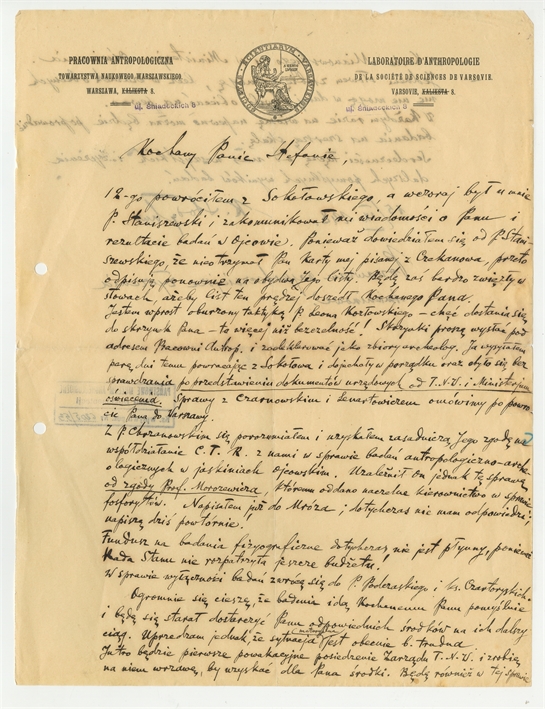 PRACOWNIA ANTROPOLOGICZNA
TOWARZYSTWA NAUKOWEGO WARSZAWSKIEGO
WARSZAWA, KALIKSTA 8.
ul. Śniadeckich 8
LABORATOIRE D'ANTHROPOLOGIE
DE LA SOCIÉTÉ DE SCIENCES DE VARSOVIE.
VARSOVIE, KALIKSTA 8.
ul. Śniadeckich 8
Kochany Panie Stefanie,
12-go powróciłem z Sokołowskiego, a wczoraj był u mnie
P. Staniszewski i zakomunikował mi wiadomości o Panu i
rezultacie badań w Ojcowie. Ponieważ dowiedziałem się od P. Stani-
szewskiego, że nie otrzymał Pan karty mej pisanej z Czekanowa, przeto
odpisuję ponownie na obydwa Jego listy. Będę zaś bardzo zwięzły w
słowach, ażeby list ten prędzej doszedł Kochanego Pana.
Jestem wprost oburzony taktyką P. Leona Kozłowskiego – chęć dostania się
do skrzynek Pana – to więcej niż bezczelność! Skrzynki proszę wysłać pod
adresem Pracowni Antrop. i zadeklarować jako zbiory archeolog. Ja wysyłałem
parę dni temu powracając z Sokołowa i dojechały w porządku oraz obyło się bez
sprawdzania po przedstawieniu dokumentów urzędowych od T.N.W. i Ministerjum
oświecenia. Sprawy z Czarnowskim i Lenartowiczem omówimy po powro-
cie Pana do Warszawy.
Z P. Chrzanowskim się porozumiałem i uzyskałem zasadniczą Jego zgodę na
współdziałanie C.T.R. z nami w sprawie badań antropologiczno-arche-
ologicznych w jaskiniach Ojcowskim. Uzależnił On jednak tę sprawę
od zgody Prof. Morozewicza, któremu oddano naczelne kierownictwo w sprawie
fosforytów. Napisałem już do Mroza i dotychczas nie mam odpowiedzi,
napiszę dziś powtórnie.
Fundusz na badania fizjograficzne dotychczas nie jest płynny, ponieważ
Rada Stanu nie rozpatrzyła jeszcze budżetu!
W sprawie wyłączności badań zwrócę się do P. Podczaskiego i ks. Czartoryskich.
Ogromnie się cieszę, że badania idą Kochanemu Panu pomyślnie
i będę się starał dostarczyć Panu odpowiednich środków na ich dalszy
ciąg. Uprzedzam jednak, że sytuacja jest obecnie b. trudna.
Jutro będzie pierwsze powakacyjne posiedzenie Zarządu T.N.W. i zrobię
na niem wrzawę, by uzyskać dla Pana środki. Będę również w tej sprawie